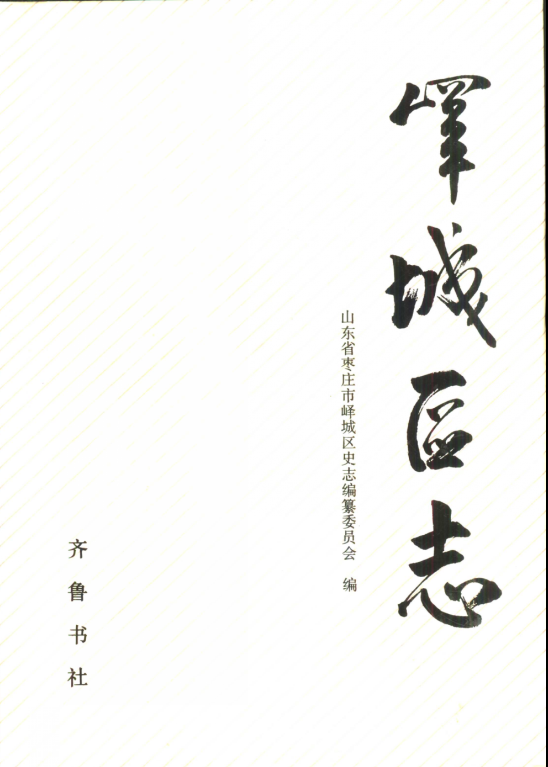 峄城区志
山东省枣庄市峄城区史志编纂委员会 编
齐鲁书社